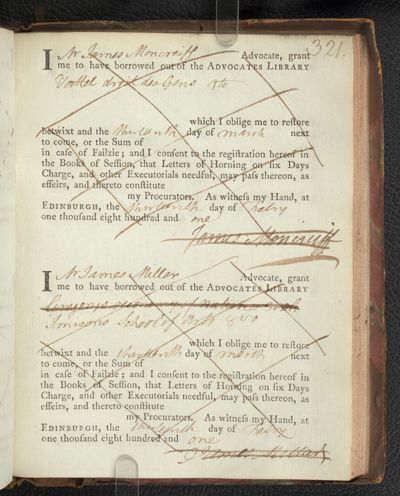 321.
I Mr James Moncreiff Advocate, grant
me to have borrowed out of the ADVOCATES LIBRARY
Vattel droit des Gens 4to
which I oblige me to reſtore
betwixt and the thirteenth day of march next
to come, or the Sum of
in caſe of Failzie; and I conſent to the regiſtration hereof in
the Books of Seſſion, that Letters of Horning on ſix Days
Charge, and other Executorials needful, may paſs thereon, as
effeirs, and thereto conſtitute
my Procurators. As witneſs my Hand, at
EDINBURGH, the thirteenth day of Febry
one thouſand eight hundred and one
James Moncreiff
I Mr James Miller Advocate, grant
me to have borrowed out of the ADVOCATES LIBRARY
School of Arts 8vo
which I oblige me to reſtore
betwixt and the thirteenth day of march next
to come, or the Sum of
in caſe of Failzie; and I conſent to the regiſtration hereof in
the Books of Seſſion, that Letters of Horning on ſix Days
Charge, and other Executorials needful, may paſs thereon, as
effeirs, and thereto conſtitute
my Procurators. As witneſs my Hand, at
EDINBURGH, the thirteenth day of Febry
one thouſand eight hundred and one
James Miller